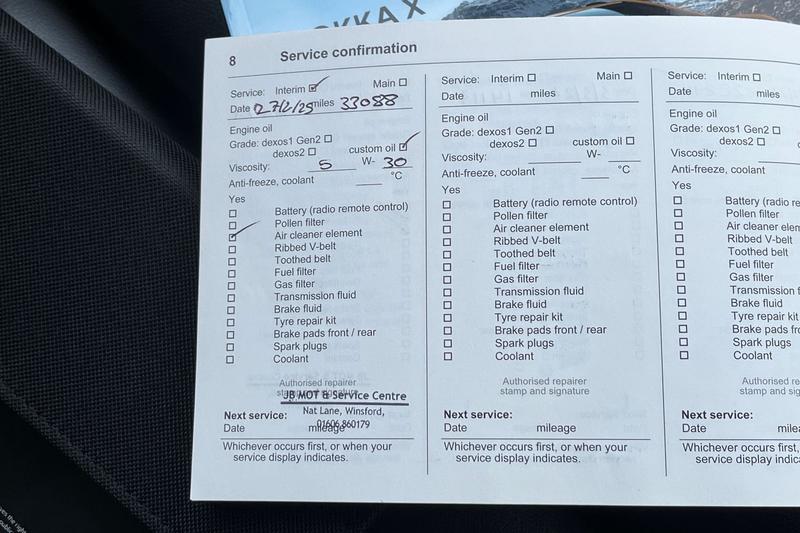 OKKA X
8 Service confirmation
Service: Interim ☑ Main ☐
Date 27/2/25 miles 33088
Engine oil
Grade: dexos1 Gen2 ☐
dexos2 ☐ custom oil ☑
Viscosity: 5 W- 30
Anti-freeze, coolant ____ °C
Yes
☐ Battery (radio remote control)
☐ Pollen filter
☑ Air cleaner element
☐ Ribbed V-belt
☐ Toothed belt
☐ Fuel filter
☐ Gas filter
☐ Transmission fluid
☐ Brake fluid
☐ Tyre repair kit
☐ Brake pads front / rear
☐ Spark plugs
☐ Coolant
Authorised repairer
stamp and signature
JB MOT & Service Centre
Nat Lane, Winsford,
01606 860179
Next service:
Date mileage
Whichever occurs first, or when your
service display indicates.
Service: Interim ☐ Main ☐
Date miles
Engine oil
Grade: dexos1 Gen2 ☐
dexos2 ☐ custom oil ☐
Viscosity: ____ W- ____
Anti-freeze, coolant ____ °C
Yes
☐ Battery (radio remote control)
☐ Pollen filter
☐ Air cleaner element
☐ Ribbed V-belt
☐ Toothed belt
☐ Fuel filter
☐ Gas filter
☐ Transmission fluid
☐ Brake fluid
☐ Tyre repair kit
☐ Brake pads front / rear
☐ Spark plugs
☐ Coolant
Authorised repairer
stamp and signature
Next service:
Date mileage
Whichever occurs first, or when your
service display indicates.
Service: Interim ☐
Date miles
Engine oil
Grade: dexos1 Gen2 ☐
dexos2 ☐
Viscosity: ____
Anti-freeze, coolant
Yes
☐ Battery (radio re
☐ Pollen filter
☐ Air cleaner elem
☐ Ribbed V-belt
☐ Toothed belt
☐ Fuel filter
☐ Gas filter
☐ Transmission f
☐ Brake fluid
☐ Tyre repair kit
☐ Brake pads fro
☐ Spark plugs
☐ Coolant
Authorised re
stamp and sig
Next service:
Date milea
Whichever occurs first,
service display indicates.